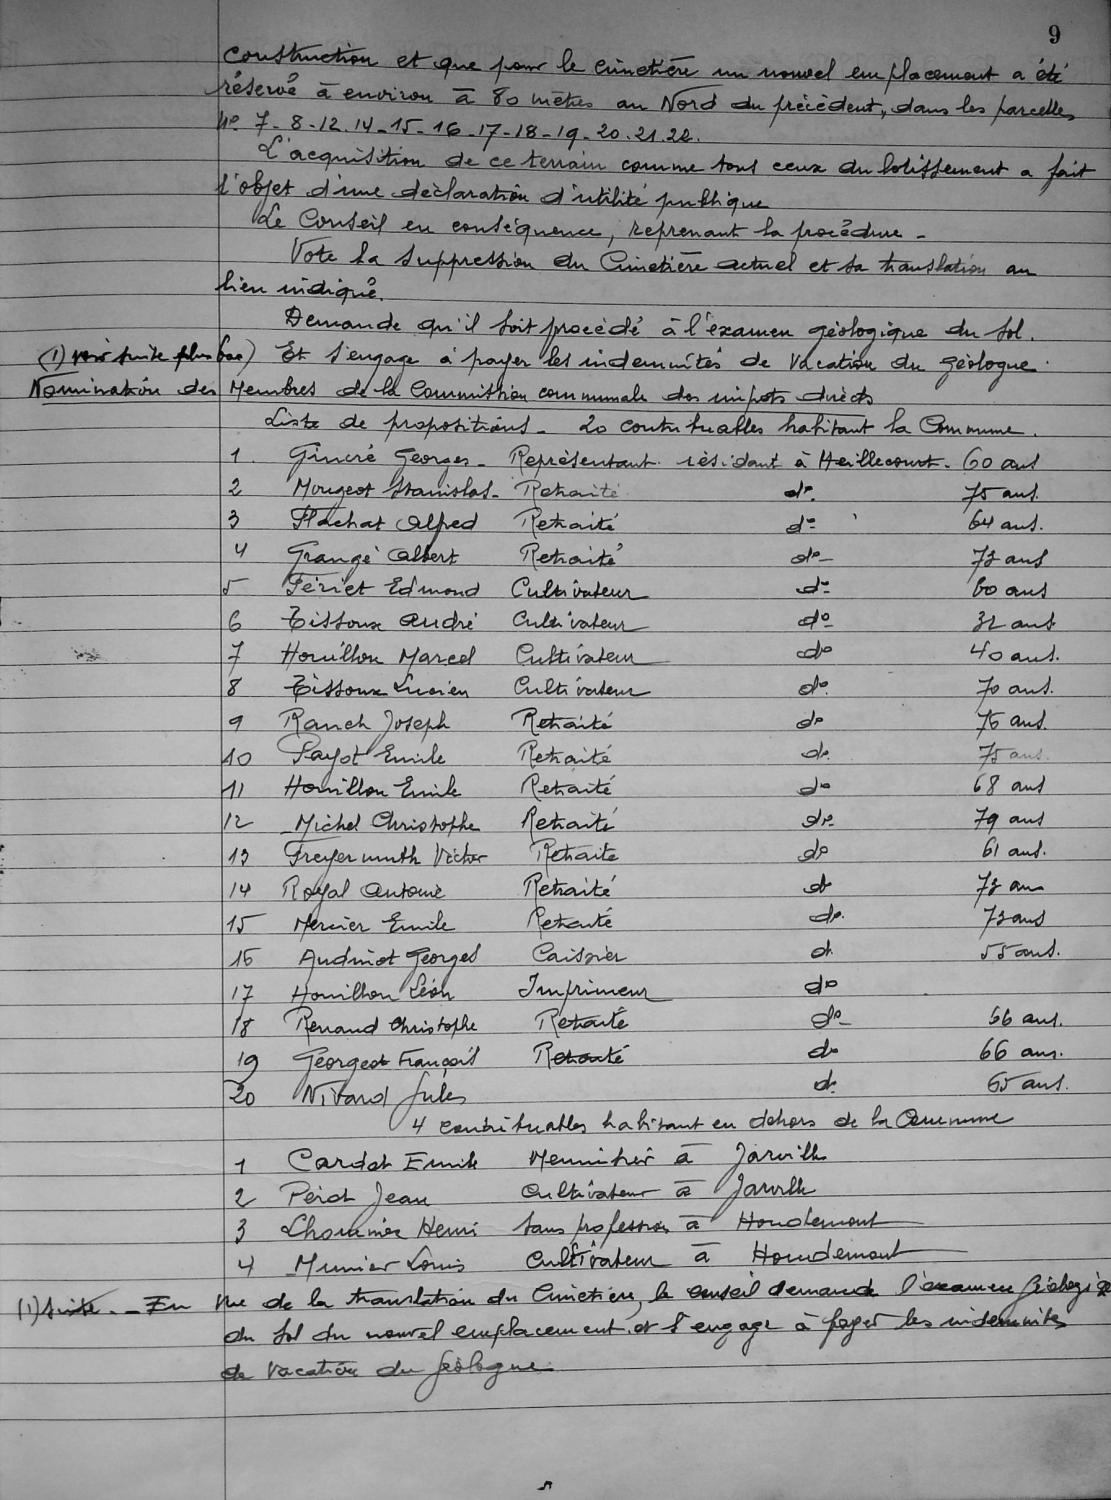 9
construction et que pour le cimetière un nouvel emplacement a été
réservé à environ à 80 mètres au Nord du précédent, dans les parcelles
N° 7-8-12.14-15-16-17-18-19-20.21.22.
L'acquisition de ce terrain comme tous ceux du lotissement a fait
l'objet d'une déclaration d'utilité publique
Le Conseil en conséquence, reprenant la procédure -
Vote la suppression du Cimetière actuel et sa translation au
lieu indiqué.
Demande qu'il soit procédé à l'examen géologique du sol.
(1) voir suite plus bas) Et s'engage à payer les indemnités de vacation du géologue.
Nomination des Membres de la Commission communale des impots directs
Liste de propositions - 20 contribuables habitant la Commune.
1 Georges - Représentant résidant à Heillecourt - 60 ans
2 Mougeot Stanislas - Retraité d° 75 ans.
3 Flachat Alfred Retraité d° 64 ans.
4 Grangé Albert Retraité d° - 73 ans
5 Fériet Edmond Cultivateur d° 60 ans
6 Tissoux André Cultivateur d° 32 ans
7 Houillon Marcel Cultivateur d° 40 ans.
8 Tissoux Lucien Cultivateur d° 70 ans.
9 Ranch Joseph Retraité d° 76 ans.
10 Payot Emile Retraité d° 75 ans.
11 Houillon Emile Retraité d° 68 ans
12 Michel Christophe Retraité d° 79 ans
13 Freyermuth Victor Retraité d° 61 ans.
14 Royal Antoine Retraité d° 73 ans
15 Mercier Emile Retraité d° 73 ans
16 Audinot Georges Caissier d° 55 ans.
17 Houillon Léon Imprimeur d°
18 Renaud Christophe Retraité d° - 66 ans.
19 Georgeot François Retraité d° 66 ans.
20 Jules d° 65 ans.
4 contribuables habitant en dehors de la Commune
1 Cardot Emile à Jarville
2 Jean Cultivateur à Jarville
3 Henri Sans profession à Houdemont
4 Munier Louis Cultivateur à Houdemont
(1) suite. - En vue de la translation du Cimetière, le conseil demande l'examen géologique
du sol du nouvel emplacement et s'engage à payer les indemnités
de vacation du géologue.